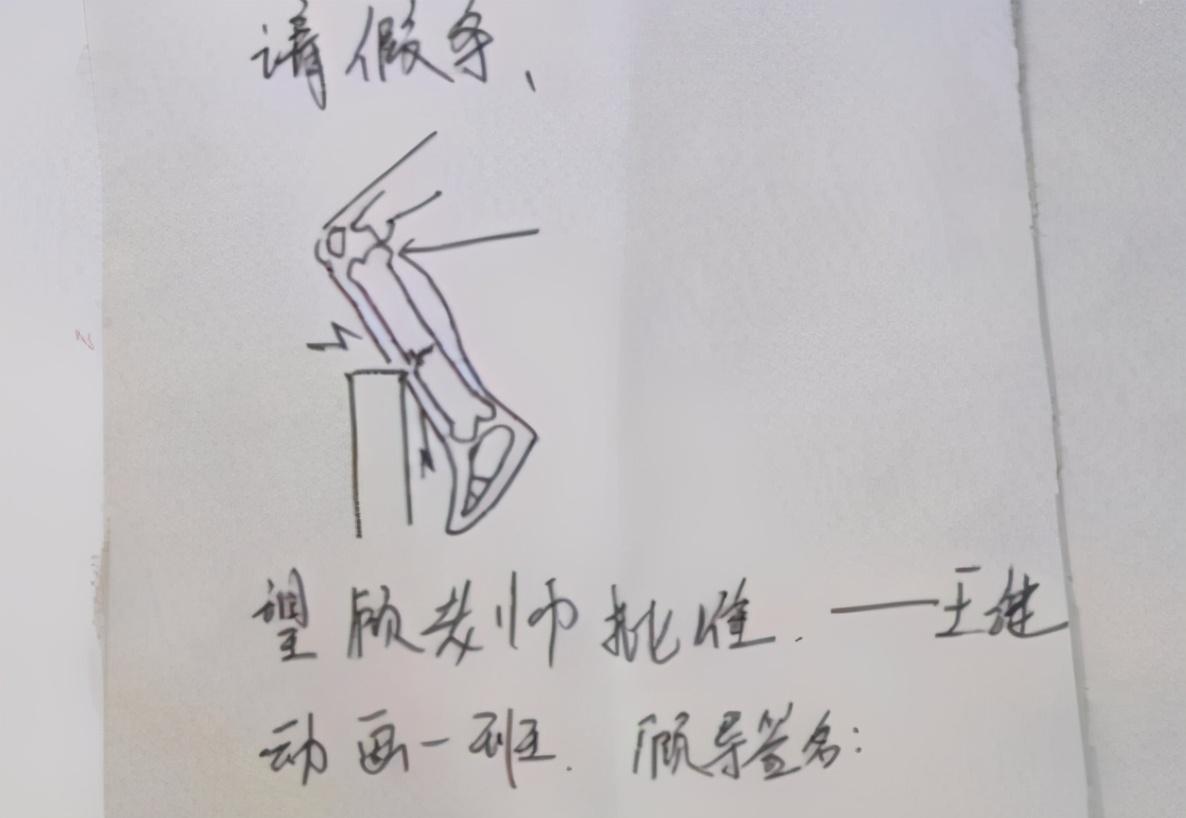 请假条、
望顾老师批准. ——王健
动画一班. 顾导签名: